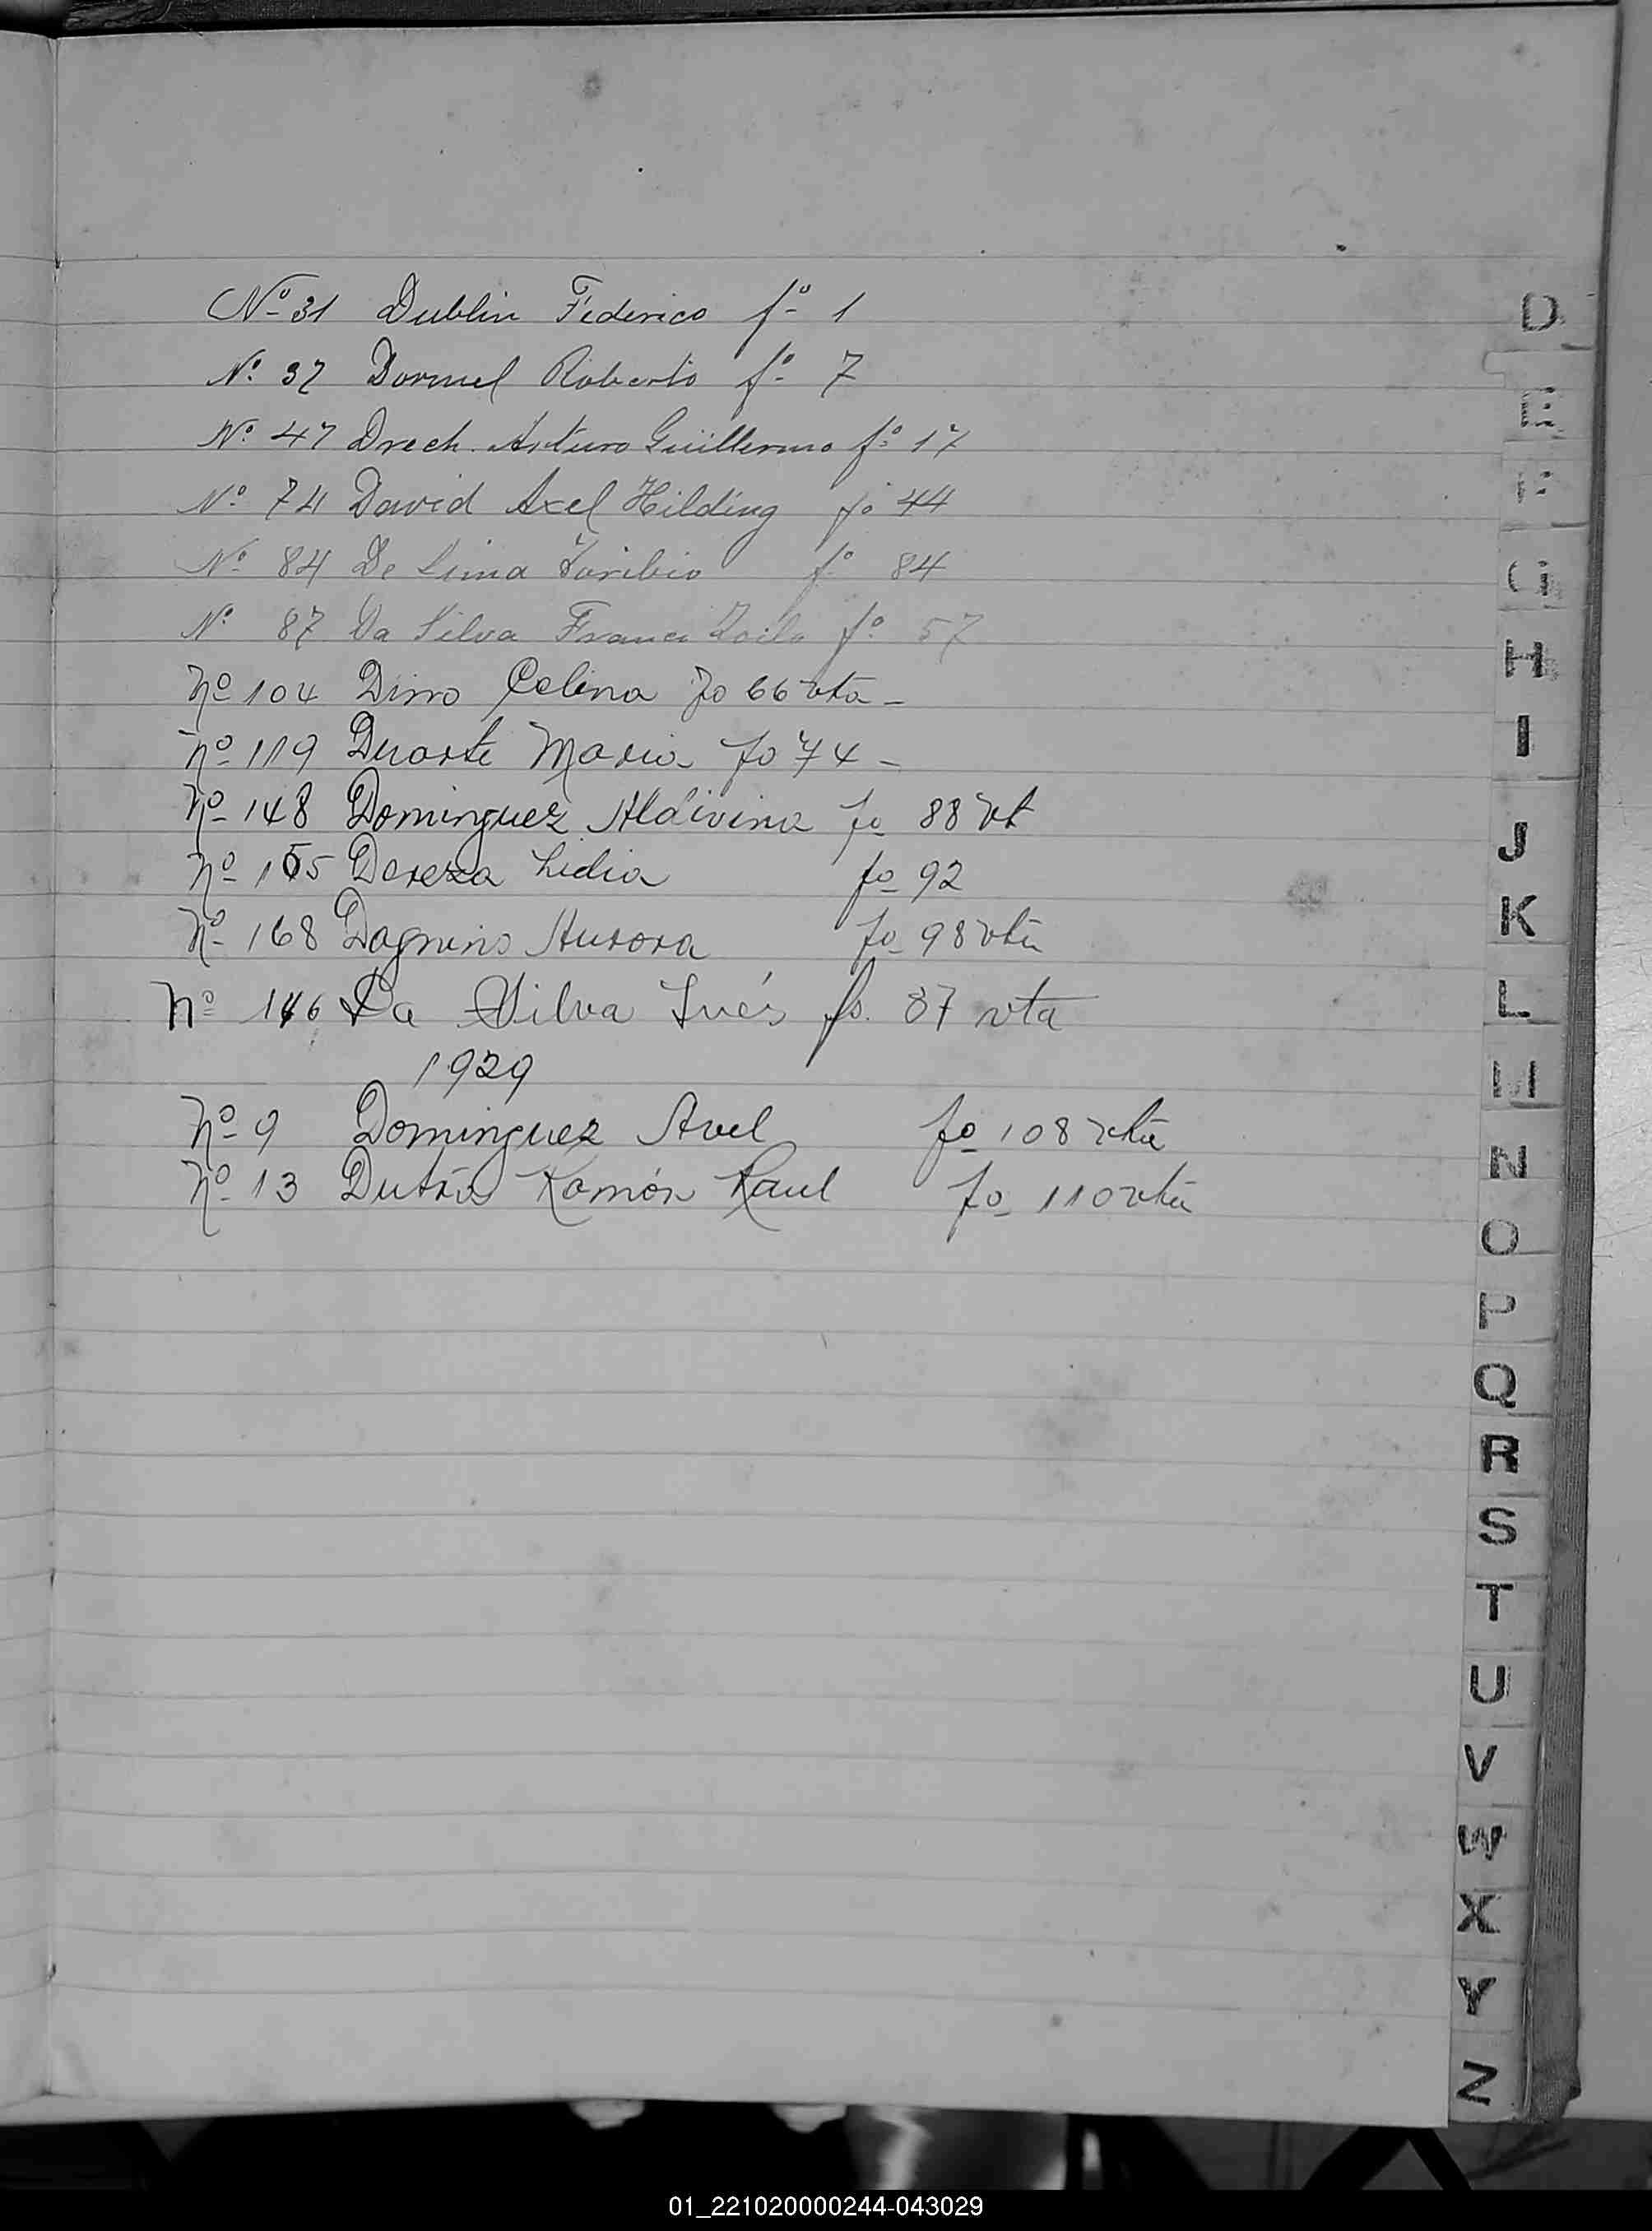 Nº 31 Dublin Federico fº 1
Nº 37 Dormel Roberto fº 7
Nº 47 Drech. Arturo Guillermo fº 17
Nº 74 David Axel Hilding fo 44
Nº 84 De Lima Toribio fº 84
Nº 87 Da Silva Franci Zoilo fº 57
Nº 104 Dino Celina fo 66 vta -
Nº 119 Duarte Maria fo 74 -
Nº 148 Dominguez Aldivina fo 88 vt
Nº 155 Dereza Lidia fo 92
Nº 168 Dagnino Aurora fo 98 vta
Nº 146 Da Silva Inés fs. 87 vta
1929
Nº 9 Dominguez Avel fo 108 vta
Nº 13 Dutra Ramón Raul fo 110 vta
D
E
F
G
H
I
J
K
L
M
N
O
P
Q
R
S
T
U
V
W
X
Y
Z
01_221020000244-043029